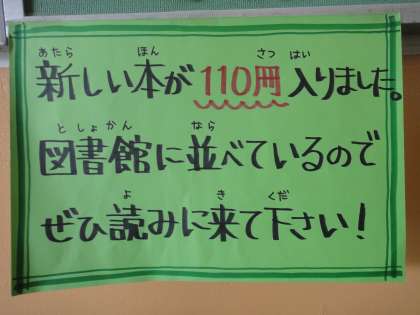 あたら ほん さつ はい
新しい本が110冊入りました。
としょかん なら
図書館に並べているので
よ き くだ
ぜひ読みに来て下さい!